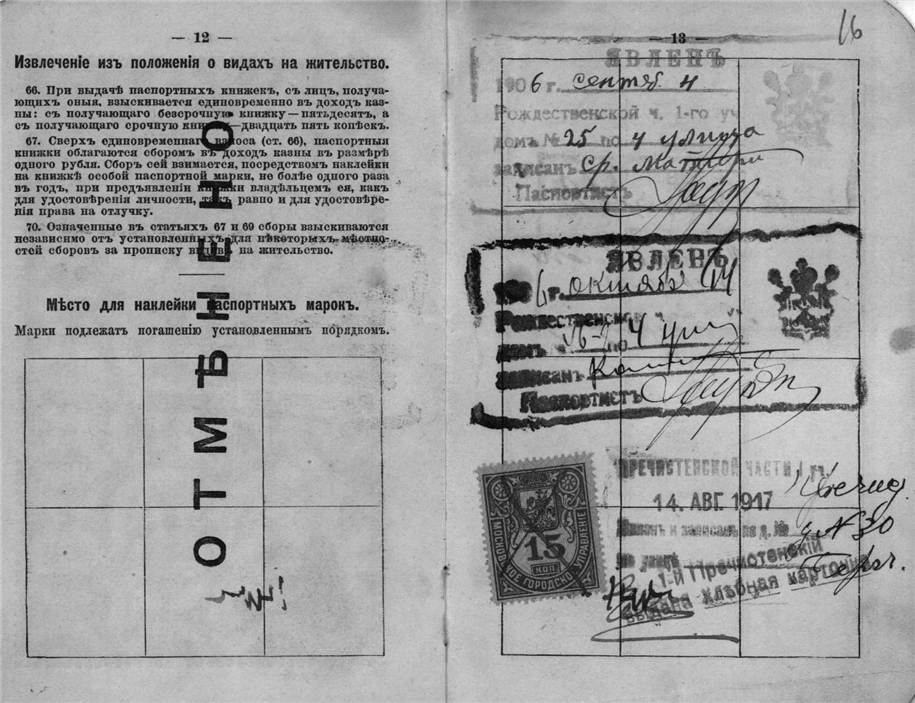 — 12 —
Извлеченіе изъ положенія о видахъ на жительство.
66. При выдачѣ паспортныхъ книжекъ, съ лицъ, получа-
ющихъ оныя, взыскивается единовременно въ доходъ каз-
ны: съ получающаго безсрочную книжку — пятьдесятъ, а
съ получающаго срочную книжку — двадцать пять копѣекъ.
67. Сверхъ единовременнаго взноса (ст. 66), паспортныя
книжки облагаются сборомъ въ доходъ казны въ размѣрѣ
одного рубля. Сборъ сей взимается, посредствомъ наклейки
на книжкѣ особой паспортной марки, не болѣе одного раза
въ годъ, при предъявленіи книжки владѣльцемъ ея, какъ
для удостовѣренія личности, такъ равно и для удостовѣре-
нія права на отлучку.
70. Означенные въ статьяхъ 67 и 69 сборы взыскиваются
независимо отъ установленныхъ для нѣкоторыхъ мѣстно-
стей сборовъ за прописку видовъ на жительство.
Мѣсто для наклейки паспортныхъ марокъ.
Марки подлежатъ погашенію установленнымъ порядкомъ.
ОТМѢНЕНО
— 13 —
16
ЯВЛЕНЪ
1906 г. сентяб 4
Рождественской ч. 1-го уч
домъ № 25 по 4 улица
записанъ ср.
Паспортистъ
ЯВЛЕНЪ
1906 г. октября 14
Рождественской
домъ по 4 ули
записанъ
Паспортистъ
ПРЕЧИСТЕНСКОЙ ЧАСТИ 1 уч.
14. АВГ. 1917
Явленъ и записанъ въ д. № 30
по улицѣ
1-й Пречистенскій
выдана хлѣбная карточка
МОСКОВСКОЕ ГОРОДСКОЕ УПРАВЛЕНІЕ
15
КОП.